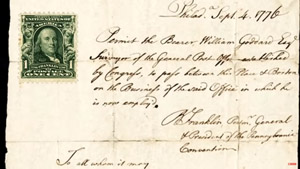 Philad.ª Sept. 4. 1776
Permit the Bearer, William Goddard Esq.
Surveyor of the General Post Office established
by Congress, to pass between this Place & Boston
on the Business of the said Office in which he
is now employ'd.
B Franklin Postm. General
& President of the Pennsylvania
Convention
To all whom it may
1
1
ONE CENT